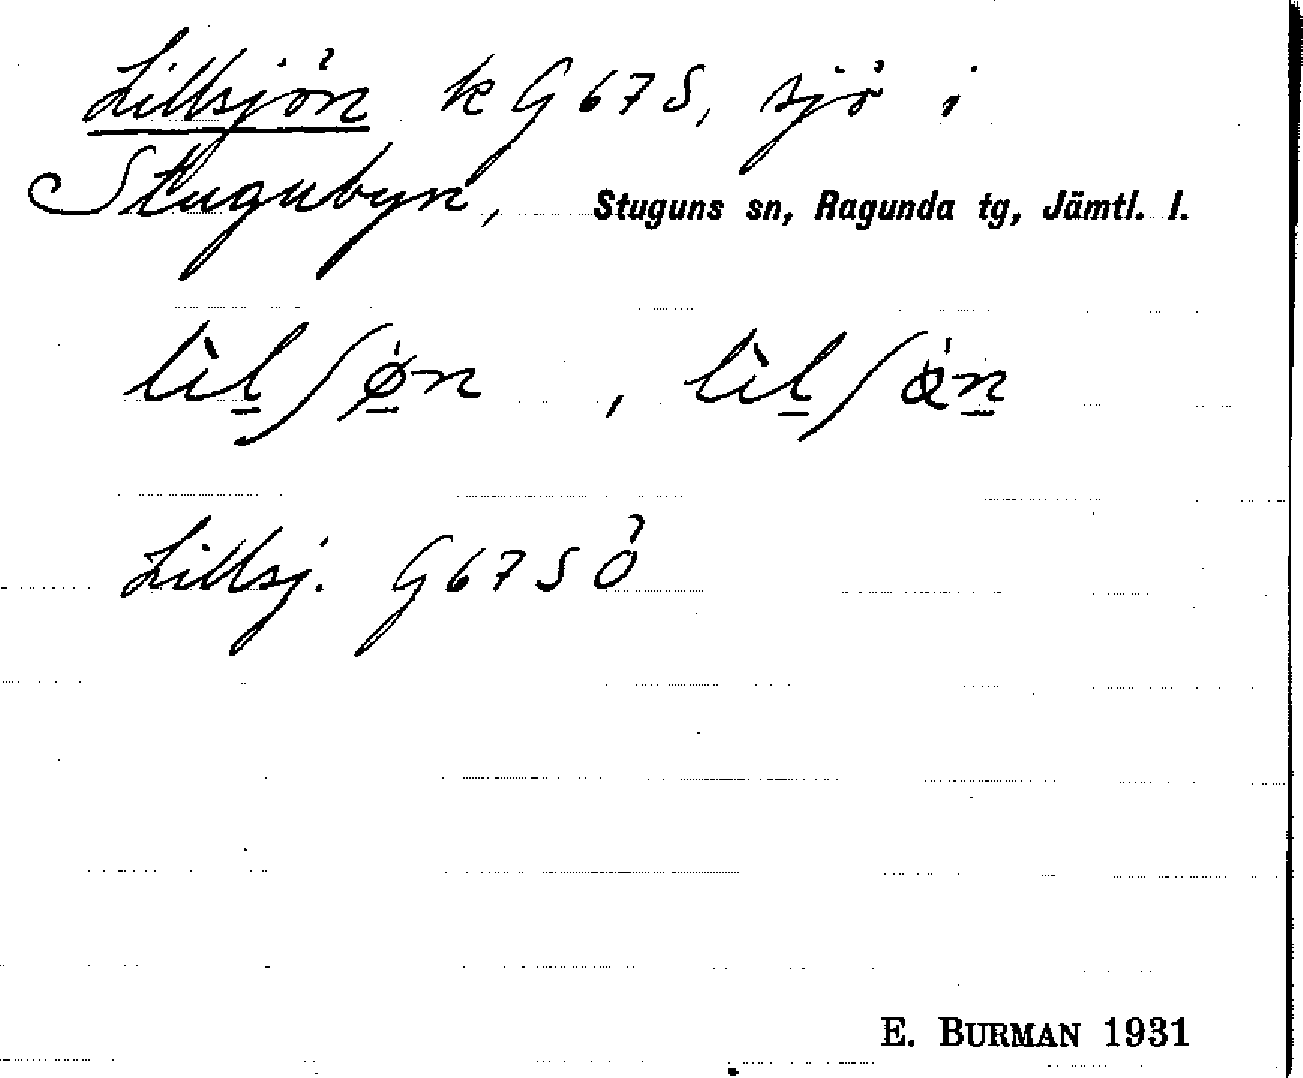 Lillsjön k G67S, sjö i
Stugubyn, Stuguns sn, Ragunda tg, Jämtl. l.
lìl̲ʃǿ̲n, lìl̲ʃǿn̲
Lillsj. G67SÖ
E. BURMAN 1931